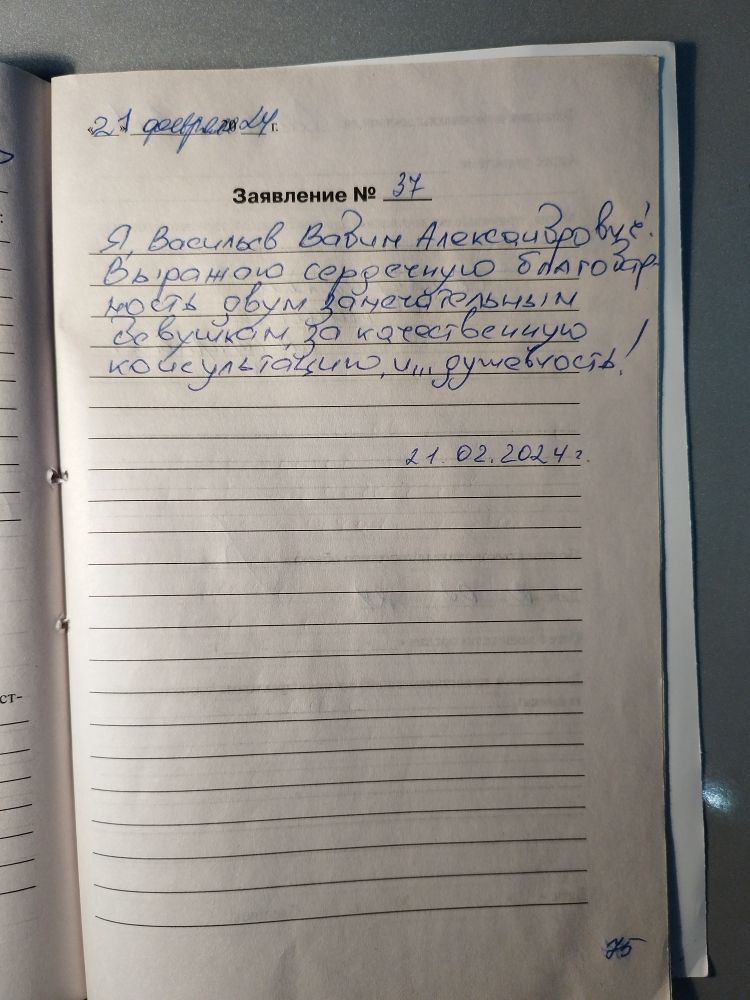 «21» февраля 2024 г.
Заявление № 37
Я, Васильев Вадим Александрович!
Выражаю сердечную благодар-
ность двум замечательным
девушкам, за качественную
консультацию, и... душевность!
21.02.2024 г.
ст-
75